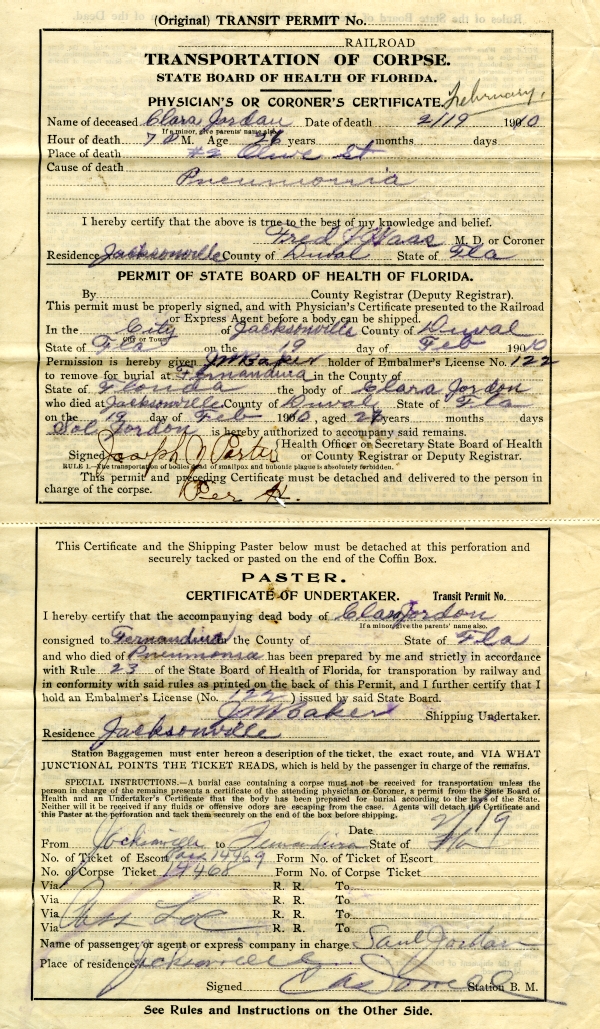 (Original) TRANSIT PERMIT No.
RAILROAD
TRANSPORTATION OF CORPSE.
STATE BOARD OF HEALTH OF FLORIDA.
PHYSICIAN'S OR CORONER'S CERTIFICATE. February,
Name of deceased Clara Jordan Date of death 2/19 1910
If a minor, give parents' name also.
Hour of death 7 M. Age 26 years months days
Place of death #2 Olive St
Cause of death
Pneumonia
I hereby certify that the above is true to the best of my knowledge and belief.
Fred J Waas M. D. or Coroner
Residence Jacksonville County of Duval State of Fla
PERMIT OF STATE BOARD OF HEALTH OF FLORIDA.
By County Registrar (Deputy Registrar).
This permit must be properly signed, and with Physician's Certificate presented to the Railroad
or Express Agent before a body can be shipped.
In the City of Jacksonville County of Duval
City or Town
State of Fla on the 19 day of Feb 1910
Permission is hereby given J M Baker holder of Embalmer's License No. 122
to remove for burial at Fernandina in the County of
State of Florida the body of Clara Jordon
who died at Jacksonville County of Duval State of Fla
on the 19 day of Feb 1910, aged 26 years months days
Sol Jordon is hereby authorized to accompany said remains.
Signed Joseph Y Porter (Health Officer or Secretary State Board of Health
or County Registrar or Deputy Registrar.
RULE 1.—The transportation of bodies dead of smallpox and bubonic plague is absolutely forbidden.
This permit and preceding Certificate must be detached and delivered to the person in
charge of the corpse. Per H.
This Certificate and the Shipping Paster below must be detached at this perforation and
securely tacked or pasted on the end of the Coffin Box.
PASTER.
CERTIFICATE OF UNDERTAKER. Transit Permit No.
I hereby certify that the accompanying dead body of Clara Jordon
If a minor, give the parents' name also.
consigned to Fernandina in the County of State of Fla
and who died of Pneumonia has been prepared by me and strictly in accordance
with Rule 23 of the State Board of Health of Florida, for transporation by railway and
in conformity with said rules as printed on the back of this Permit, and I further certify that I
hold an Embalmer's License (No. 122) issued by said State Board.
J M Baker Shipping Undertaker.
Residence Jacksonville
Station Baggagemen must enter hereon a description of the ticket, the exact route, and VIA WHAT
JUNCTIONAL POINTS THE TICKET READS, which is held by the passenger in charge of the remains.
SPECIAL INSTRUCTIONS.—A burial case containing a corpse must not be received for transportation unless the
person in charge of the remains presents a certificate of the attending physician or Coroner, a permit from the State Board of
Health and an Undertaker's Certificate that the body has been prepared for burial according to the laws of the State.
Neither will it be received if any fluids or offensive odors are escaping from the case. Agents will detach the Certificate and
this Paster at the perforation and tack them securely on the end of the box before shipping.
Date 2/19
From Jacksonville to Fernandina State of Fla
No. of Ticket of Escort 14469 Form No. of Ticket of Escort
No. of Corpse Ticket 14468 Form No. of Corpse Ticket
Via R. R. To
Via R. R. To
Via R. R. To
Via R. R. To
Name of passenger or agent or express company in charge Saul Jordan
Place of residence Jacksonville
Signed Station B. M.
See Rules and Instructions on the Other Side.